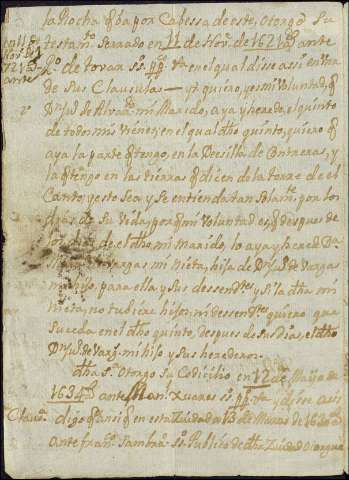 la Rocha q̃ ba por Cabessa de este, otorgò Su
testam.to Serrado en 11 de Nov.e de 1621 a.s ante
R.o de tovar s.o pp.co en el qual disse assi entra
de Sus Clausulas — yt quiero, y es mi Voluntad, q̃
D.n Ju.o de mi Marido, aya y herede, el quinto
de todos mis vienes, en el qual dho quinto, quiero q̃
aya la parte q̃ tengo, en la Dehesilla de Contreras, y
la q̃ tengo en las tierras q̃ dicen de la torre de el
Canto, y esto Sea y Se entienda tan Solam.te por los
dias de Su Vida, porq̃ mi Voluntad es, q̃ despues de
los dias de el dho mi Marido, lo aya y herede D.a
Vargas mi Nieta, hija de D.n Ju.o de Vargas
mi hijo, para ella, y Sus dessend.tes y Si la dha mi
nieta, no tubiere hijos, ni dessendentes quiero, que
suceda en el dho quinto, despues de Sus dias, el dho
D.n Ju.o de Varg.s mi hijo y Sus herederos.
dha s.a Otorgo Su Codicilio en 12 de Maijo de
1634 a.s ante Man.l Xuares s.o pp.co y dise asi
Claus.a digo q̃ ansi q̃ en esta Ciudad a 13 de Marzo de 1620 a.s
ante fran.co Sambra.o s.o Publico de dha Ciudad otorgue